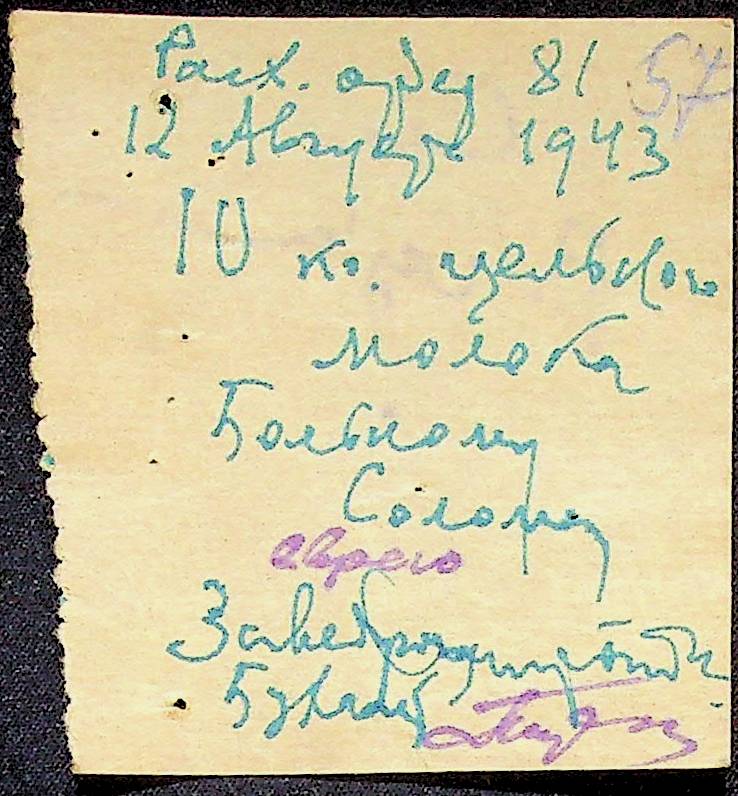 57
Расх. ордер 81
12 Августа 1943
10 кг. цельного
молока
Больному
Соломен
еврею
Заведующий